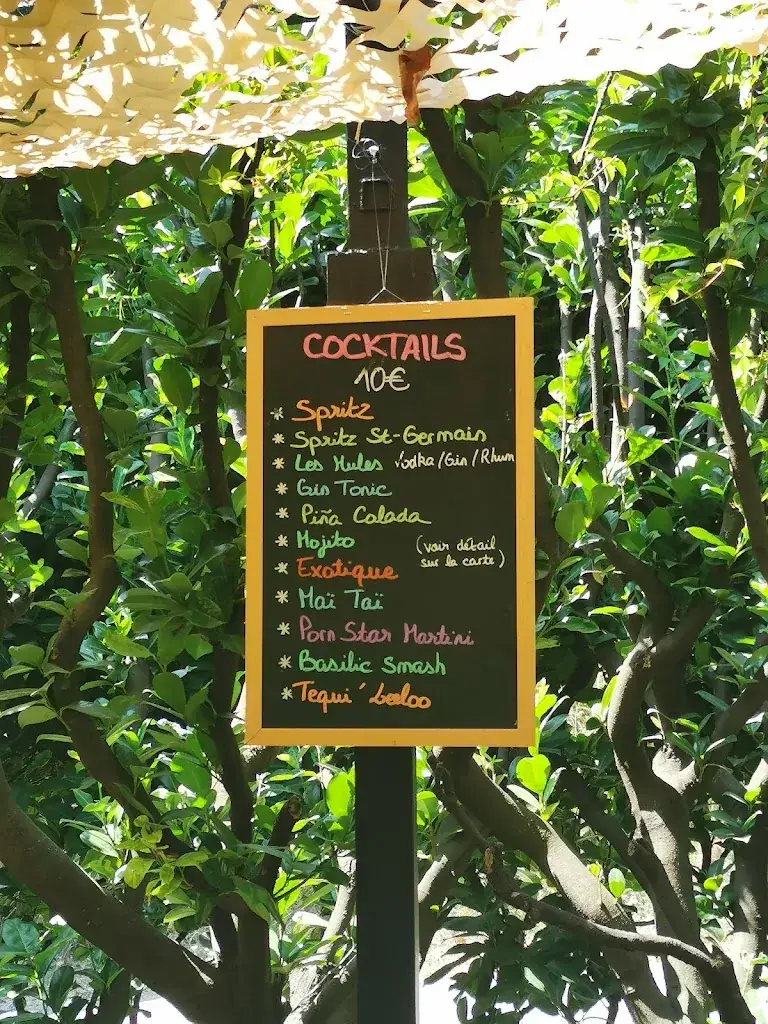 COCKTAILS
10€
* Spritz
* Spritz St-Germain
* Les Mules Vodka/Gin/Rhum
* Gin Tonic
* Piña Colada
* Mojito
(voir détail
sur la carte)
* Exotique
* Maï Taï
* Porn Star Martini
* Basilic Smash
* Tequi'